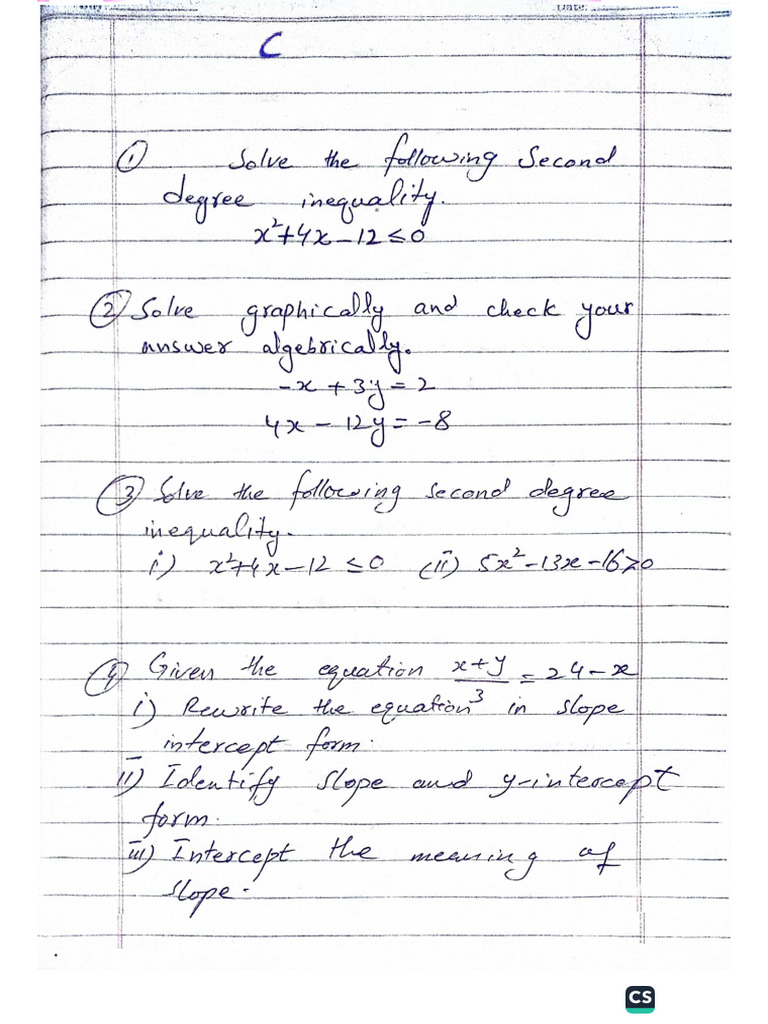 C
① Solve the following Second
degree inequality.
x²+4x-12≤0
② Solve graphically and check your
answer algebrically.
-x + 3y = 2
4x - 12y = -8
③ Solve the following second degree
inequality.
i) x²+4x-12 ≤0 (ii) 5x²-13x-16≥0
④ Given the equation x+y/3 = 24-x
i) Rewrite the equation in slope
intercept form.
ii) Identify slope and y-intercept
form.
iii) Intercept the meaning of
slope.
CS